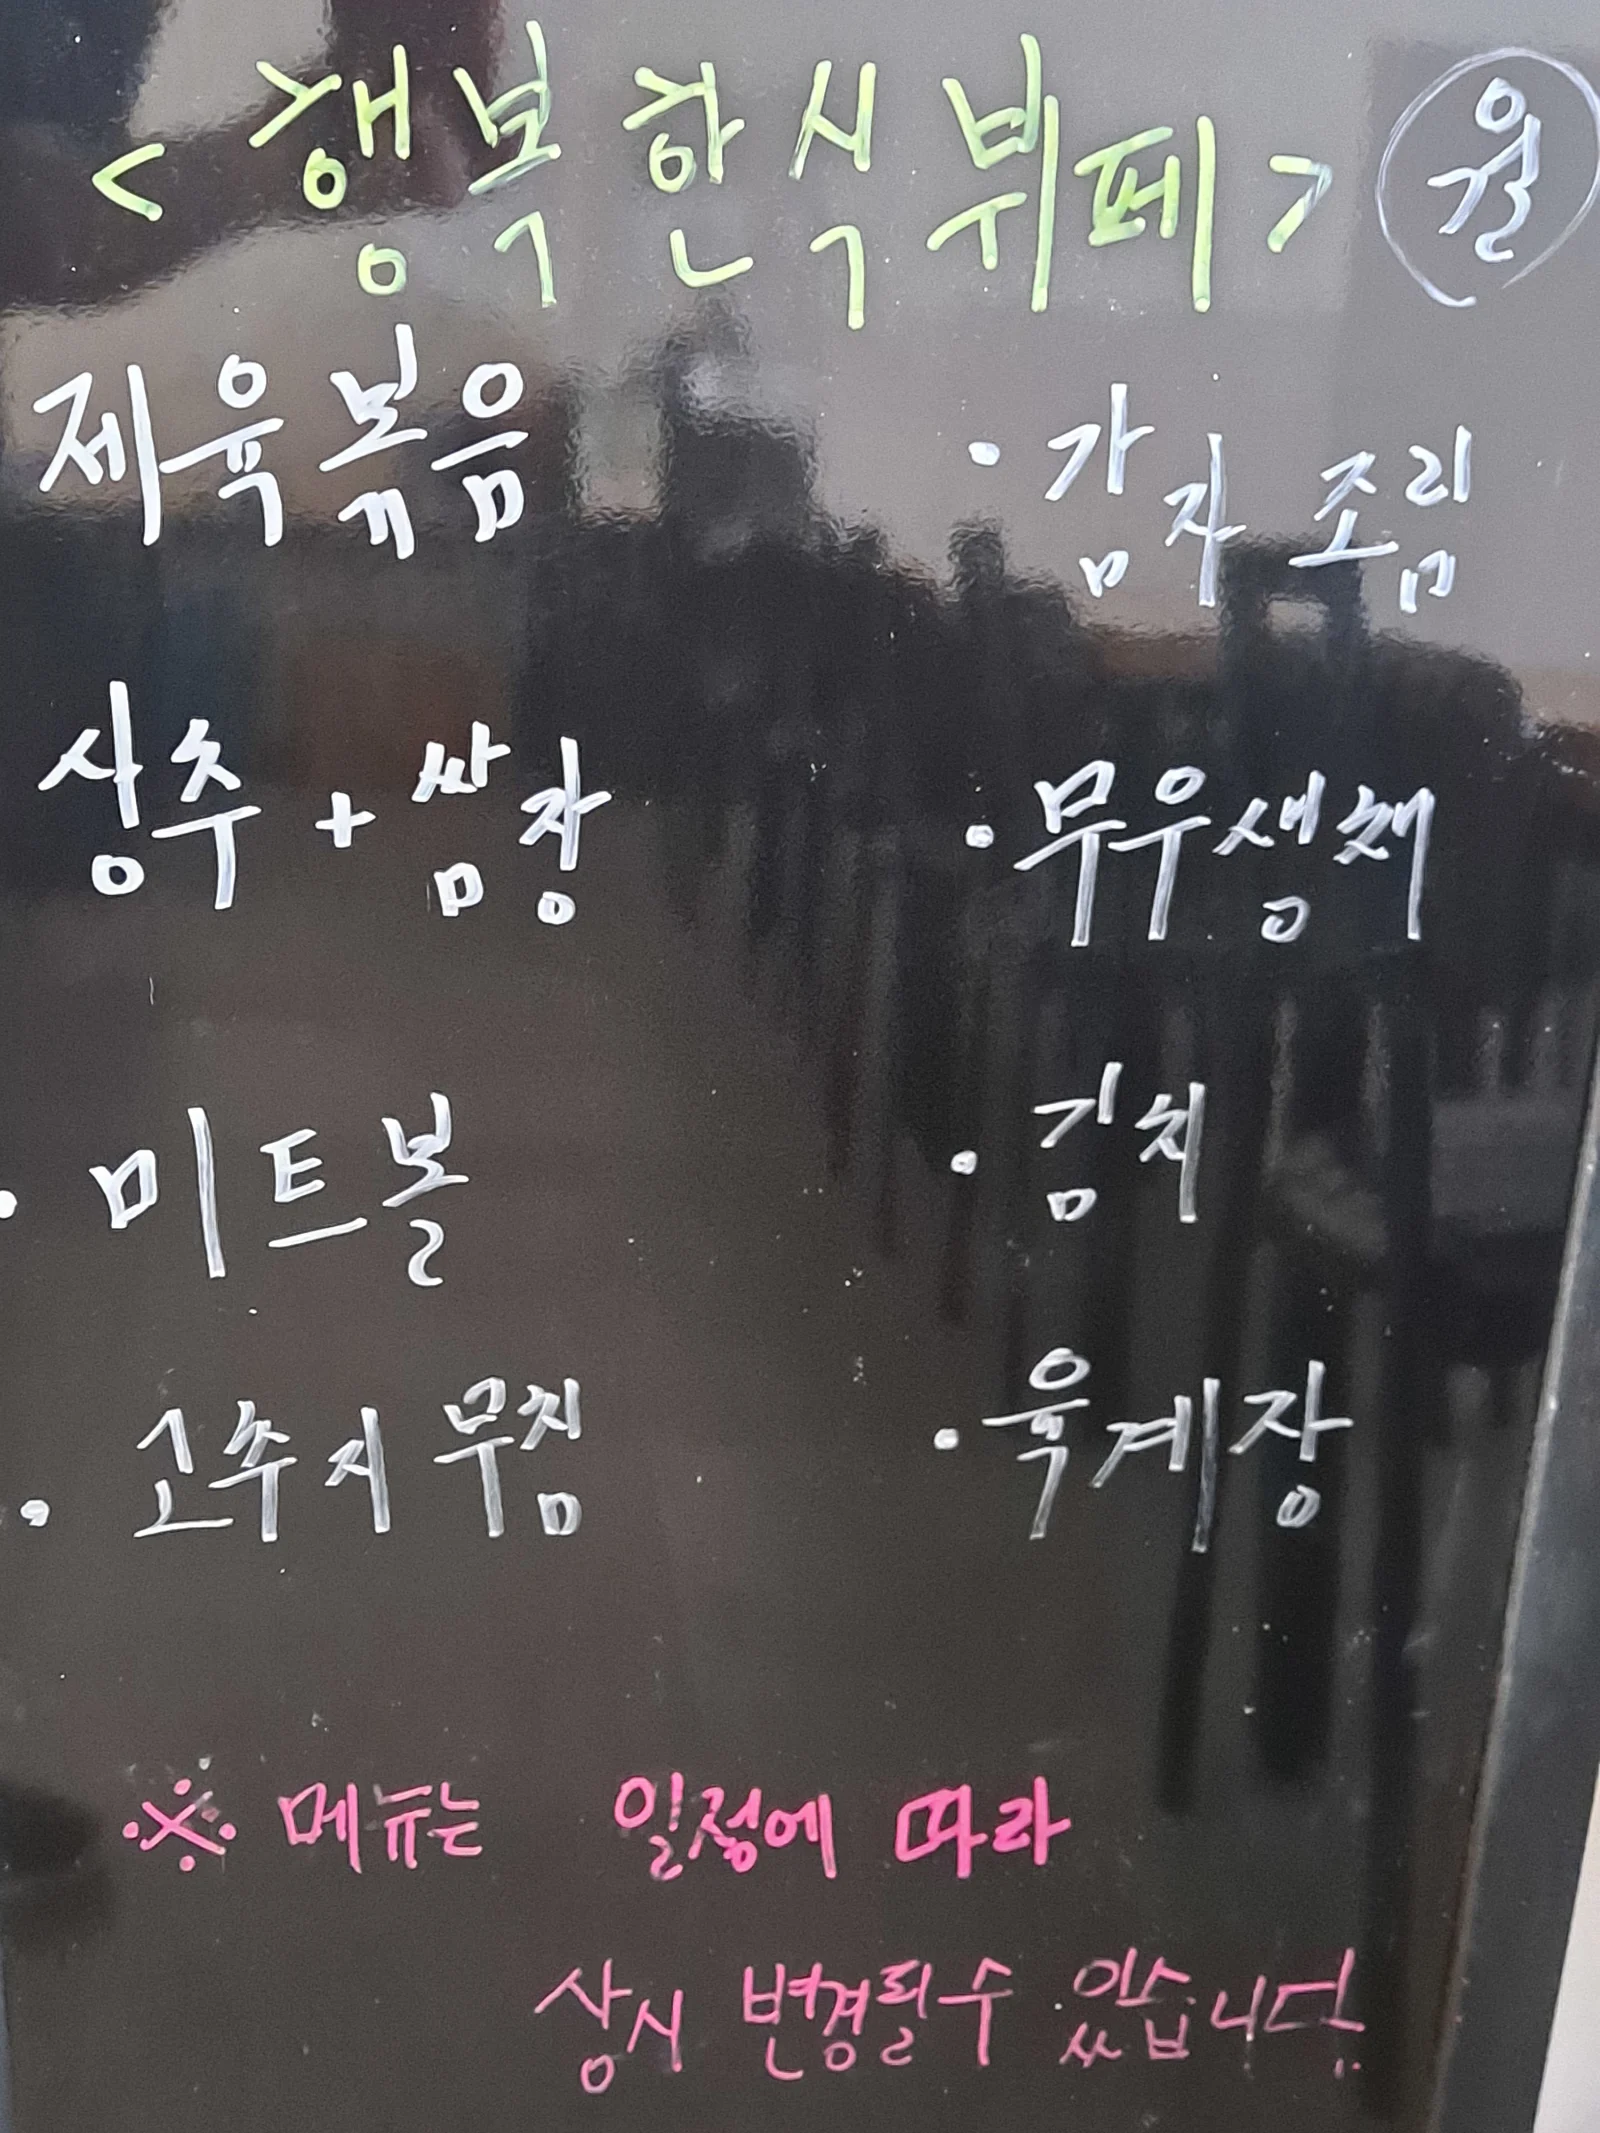 <행복한식뷔페> 월
제육볶음
· 감자조림
상추 + 쌈장
· 무우생채
· 미트볼
· 김치
· 고추지무침
· 육계장
※ 메뉴는 일정에 따라
상시 변경될수 있습니다.